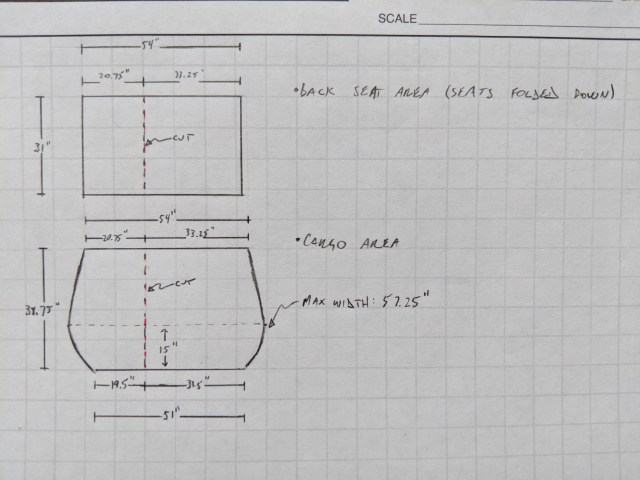 SCALE
54"
20.75" 33.25"
•BACK SEAT AREA (SEATS FOLDED DOWN)
31"
CUT
54"
20.75" 33.25"
•CARGO AREA
CUT
38.75"
MAX WIDTH: 57.25"
15"
19.5" 31.5"
51"